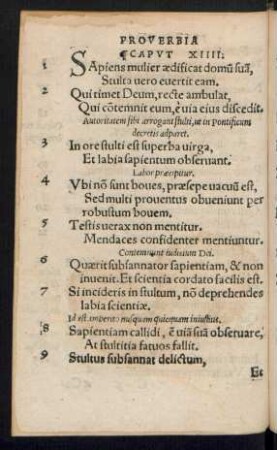 PROVERBIA
¶CAPVT XIIII:
1 SApiens mulier ædificat domũ suã,
Stulta uero euertit eam.
2 Qui timet Deum, recte ambulat,
Qui cõtemnit eum, ẽ uia eius discedit.
Autoritatem sibi arrogant stulti, ut in Pontificum
decretis adparet.
3 In ore stulti est superba uirga,
Et labia sapientum obseruant.
Labor præcipitur.
4 Vbi nõ sunt boues, præsepe uacuũ est,
Sed multi prouentus obueniunt per
robustum bouem.
5 Testis uerax non mentitur.
Mendaces confidenter mentiuntur.
Contemnunt iudicium Dei.
6 Quærit subsannator sapientiam, & non
inuenit. Et scientia cordato facilis est.
7 Si incideris in stultum, nõ deprehendes
labia scientiæ.
Id est, imperato nusquam quicquam iniussit.
8 Sapientiam callidi, ẽ uiã suã obseruare,
At stultitia fatuos fallit.
9 Stultus subsannat delictum,
Et